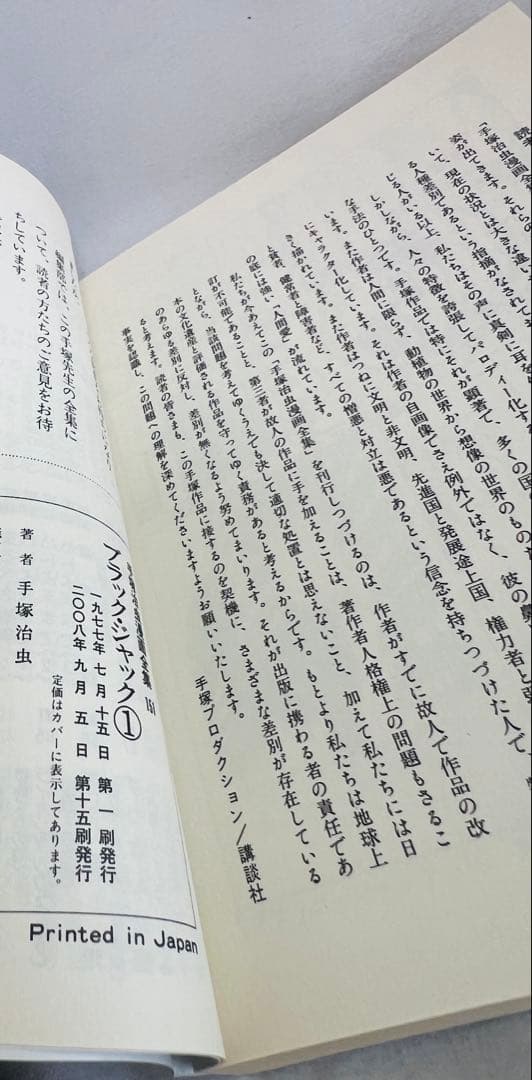 「手塚治虫漫画全
姿が出てきます。それらの
いて、現在の状況とは大きな違い
る人種差別であるという指摘がなされて
じる人がいる以上、私たちはその声に真剣に耳を
しかしながら、人々の特徴を誇張してパロディー化す
な手法のひとつです。手塚作品では特にそれが顕著で、多くの国
います。また作者は人間に限らず、動植物の世界から想像の世界のものま
にキャラクター化しています。それは作者の自画像でさえ例外ではなく、彼の
さく描かれています。また作者はつねに文明と非文明、先進国と発展途上国、権力者と
と貧者、健常者と障害者など、すべての憎悪と対立は悪であるという信念を持ちつづけた人で
の底には強い「人間愛」が流れています。
私たちが今あえてこの「手塚治虫漫画全集」を刊行しつづけるのは、作者がすでに故人で作品の改
訂が不可能であることと、第三者が故人の作品に手を加えることは、著作者人格権上の問題もさるこ
とながら、当該問題を考えてゆくうえでも決して適切な処置とは思えないこと、加えて私たちには日
本の文化遺産と評価される作品を守ってゆく責務があると考えるからです。もとより私たちは地球上
のあらゆる差別に反対し、差別が無くなるよう努めてまいります。それが出版に携わる者の責任であ
ると考えます。読者の皆さまも、この手塚作品に接するのを契機に、さまざまな差別が存在している
事実を認識し、この問題への理解を深めてくださいますようお願いいたします。
手塚プロダクション/講談社
編集室では、この手塚先生の全集に
ついて、読者の方たちのご意見をお待
ちしています。
全集 151
ブラック・ジャック①
一九七七年七月十五日 第一刷発行
二〇〇八年九月五日 第十五刷発行
定価はカバーに表示してあります。
著者 手塚治虫
Printed in Japan